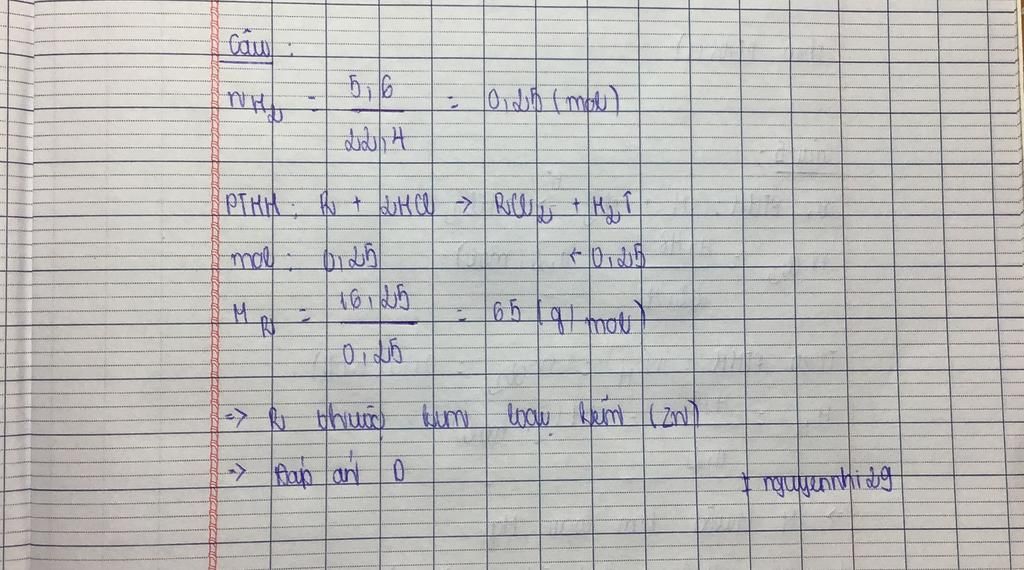 Câu :
nH₂ = 5,6 / 22,4 = 0,25 (mol)
PTHH : R + 2HCl → RCl₂ + H₂↑
mol : 0,25 ← 0,25
M_R = 16,25 / 0,25 = 65 (g/mol)
=> R thuộc kim loại kẽm (Zn)
=> Đáp án D
# nguyennhi29